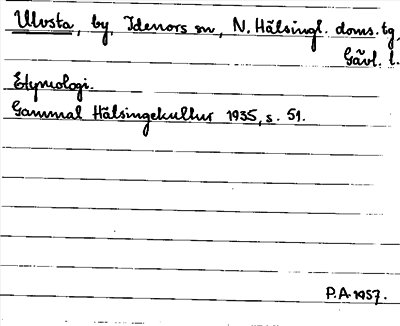 Ulvsta, by, Idenors sn, N. Hälsingl. doms.tg,
Gävl. l.
Etymologi.
Gammal Hälsingekultur 1935, s. 51.
P.A. 1957.